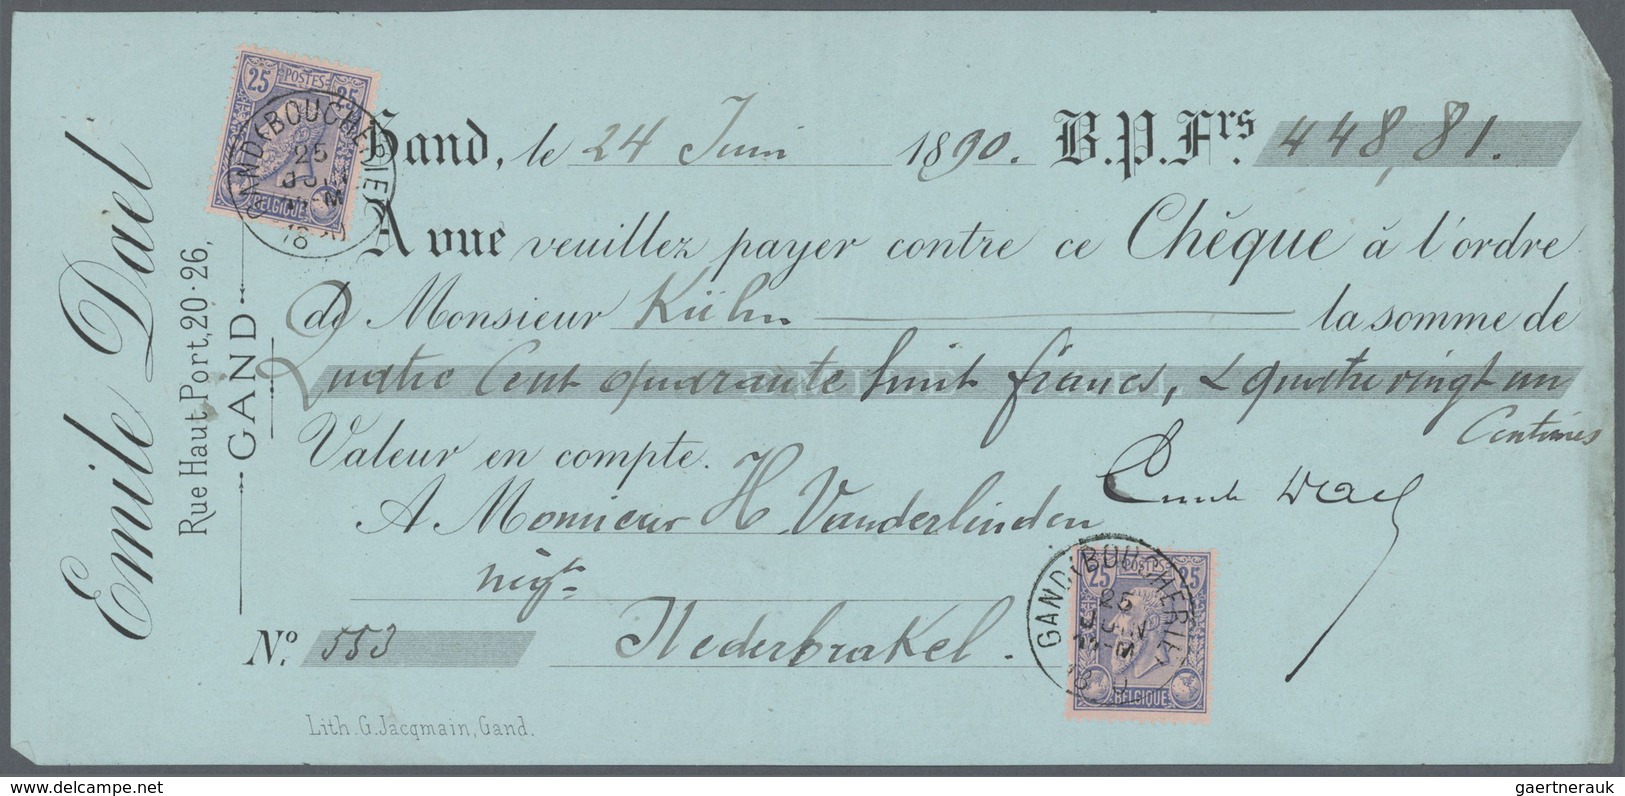 Emile Daël
Rue Haut Port, 20-26,
GAND
25 POSTES 25
BELGIQUE
GAND (BOUCHERIE)
25
JUIN
Gand, le 24 Juin 1890. B.P.Frs. 448,81.
A vue veuillez payer contre ce Chèque à l'ordre
de Monsieur Kühn la somme de
Quatre Cent quarante huit francs, & quatre vingt un
Centimes
Valeur en compte.
Emile Dael
A Monsieur H Vanderlinden
negt
Nederbrakel.
No. 553
25 POSTES 25
BELGIQUE
GAND (BOUCHERIE)
25
JUIN
Lith. G. Jacqmain, Gand.
gaertnerauk